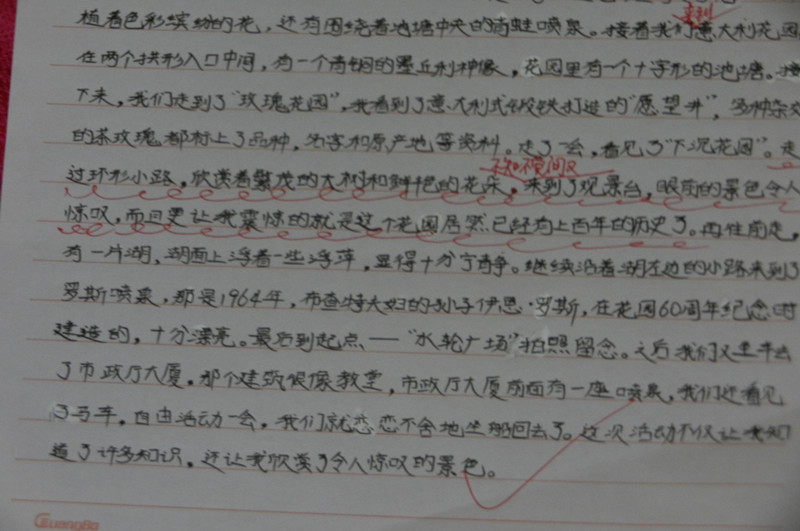 植着色彩缤纷的花，还有围绕着池塘中央的青蛙喷泉。接着我们意大利花园
来到
在两个拱形入口中间，有一个青铜的墨丘利神像，花园里有一个十字形的池塘。接
下来，我们走到了“玫瑰花园”，我看到了意大利式钢铁打造的“愿望井”，多种杂交
的茶玫瑰都标上了品种，名字和原产地等资料。走了一会，看见了“下沉花园”。走
不知不觉间又
过环形小路，欣赏着繁茂的大树和鲜艳的花朵，来到了观景台，眼前的景色令人
惊叹，而且更让我震惊的就是这个花园居然已经有上百年的历史了。再往前走，
有一片湖，湖面上浮着一些浮萍，显得十分宁静。继续沿着湖左边的小路来到了
罗斯喷泉，那是1964年，布查特夫妇的孙子伊恩·罗斯，在花园60周年纪念时
建造的，十分漂亮。最后到起点——“水轮广场”拍照留念。之后我们又坐车去
了市政厅大厦，那个建筑很像教堂，市政厅大厦前面有一座喷泉，我们还看见
了马车，自由活动一会，我们就恋恋不舍地坐船回去了。这次活动不仅让我知
道了许多知识，还让我欣赏了令人惊叹的景色。
GuangBo